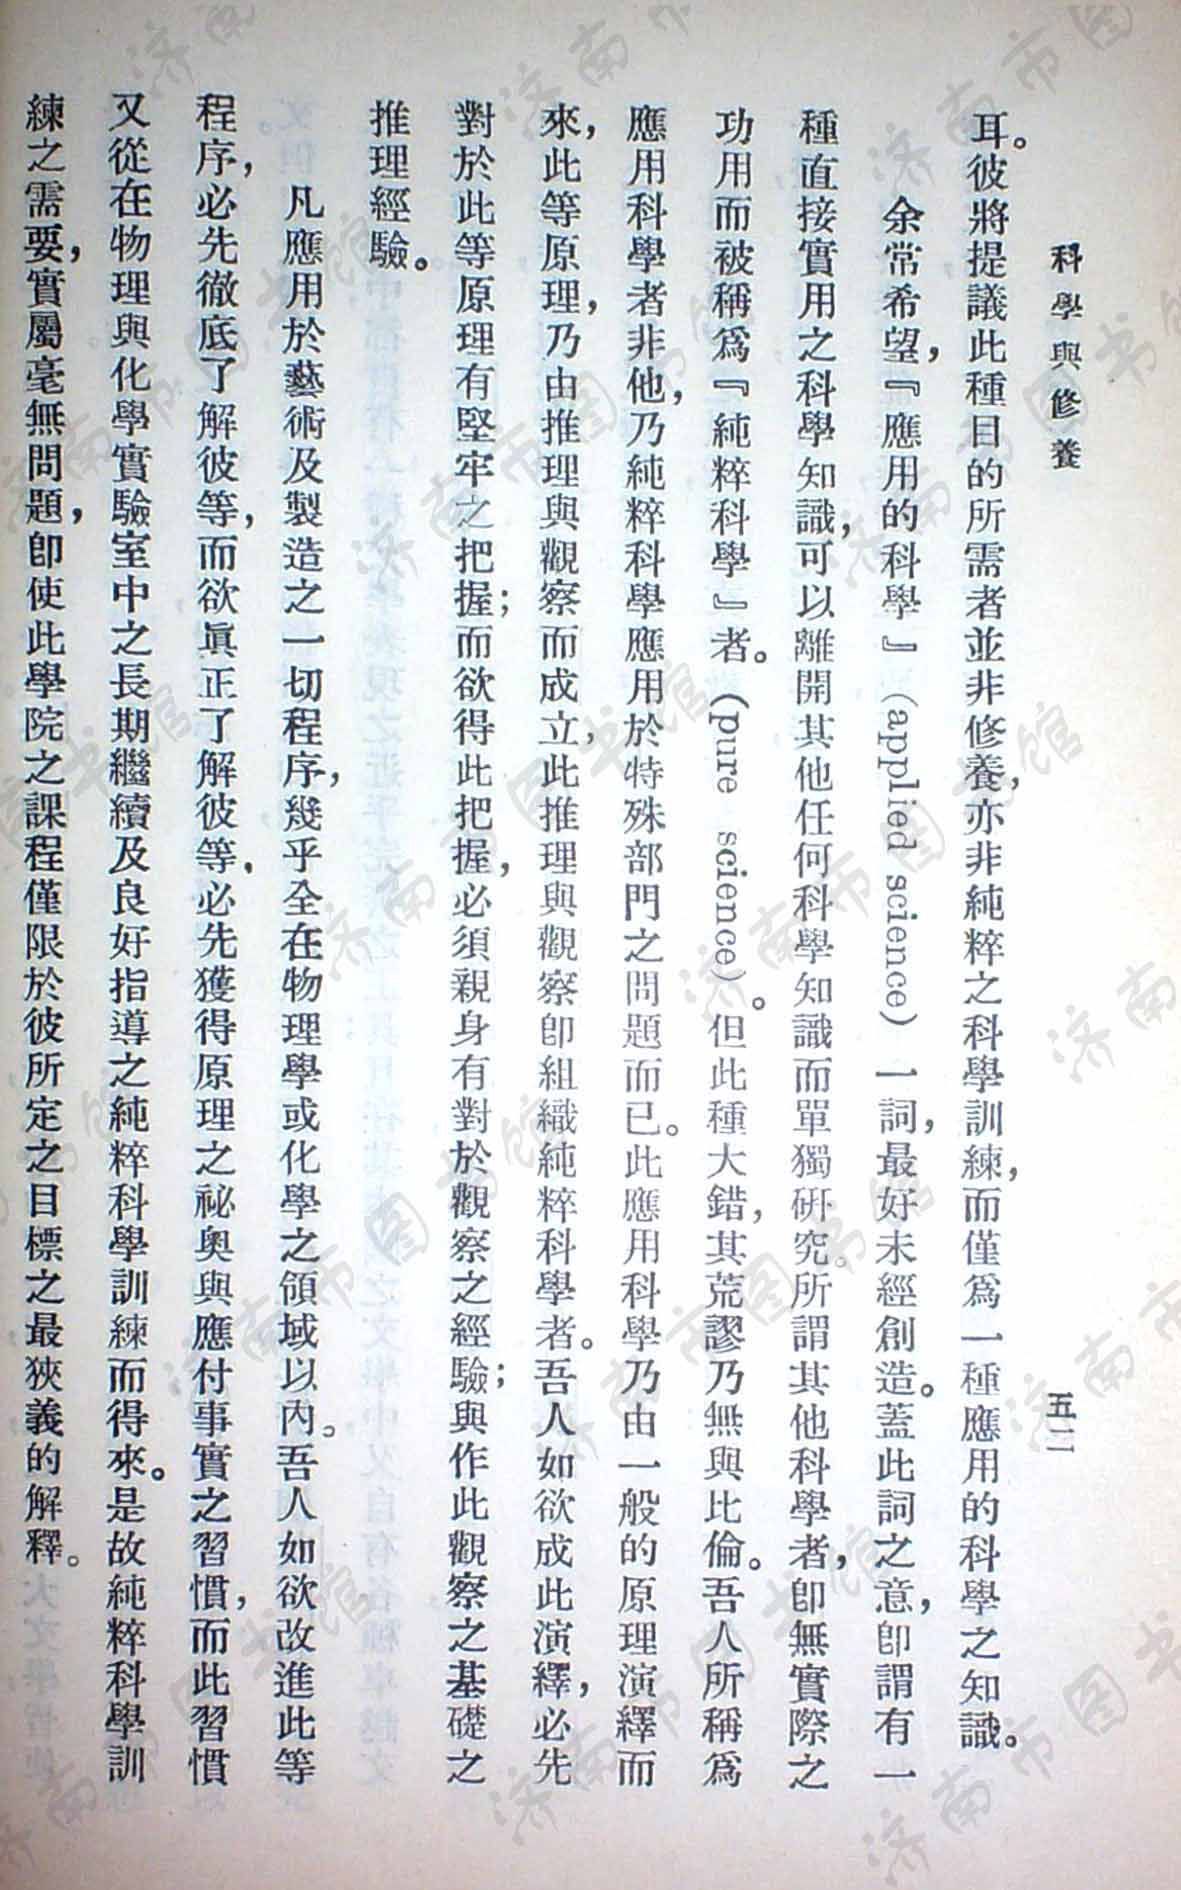 科學與修養
五二
耳。彼將提議此種目的所需者並非修養，亦非純粹之科學訓練，而僅爲一種應用的科學之知識。
余常希望，『應用的科學』(applied science)一詞，最好未經創造。蓋此詞之意，卽謂有一
種直接實用之科學知識，可以離開其他任何科學知識而單獨硏究。所謂其他科學者，卽無實際之
功用而被稱爲『純粹科學』者。(pure science)。但此種大錯，其荒謬乃無與比倫。吾人所稱爲
應用科學者非他，乃純粹科學應用於特殊部門之問題而已。此應用科學乃由一般的原理演繹而
來，此等原理，乃由推理與觀察而成立，此推理與觀察卽組織純粹科學者。吾人如欲成此演繹，必先
對於此等原理有堅牢之把握；而欲得此把握，必須親身有對於觀察之經驗；與作此觀察之基礎之
推理經驗。
凡應用於藝術及製造之一切程序，幾乎全在物理學或化學之領域以內。吾人如欲改進此等
程序，必先徹底了解彼等，而欲眞正了解彼等，必先獲得原理之祕奧與應付事實之習慣，而此習慣
又從在物理與化學實驗室中之長期繼續及良好指導之純粹科學訓練而得來。是故純粹科學訓
練之需要，實屬毫無問題，卽使此學院之課程僅限於彼所定之目標之最狹義的解釋。
济南市图书馆